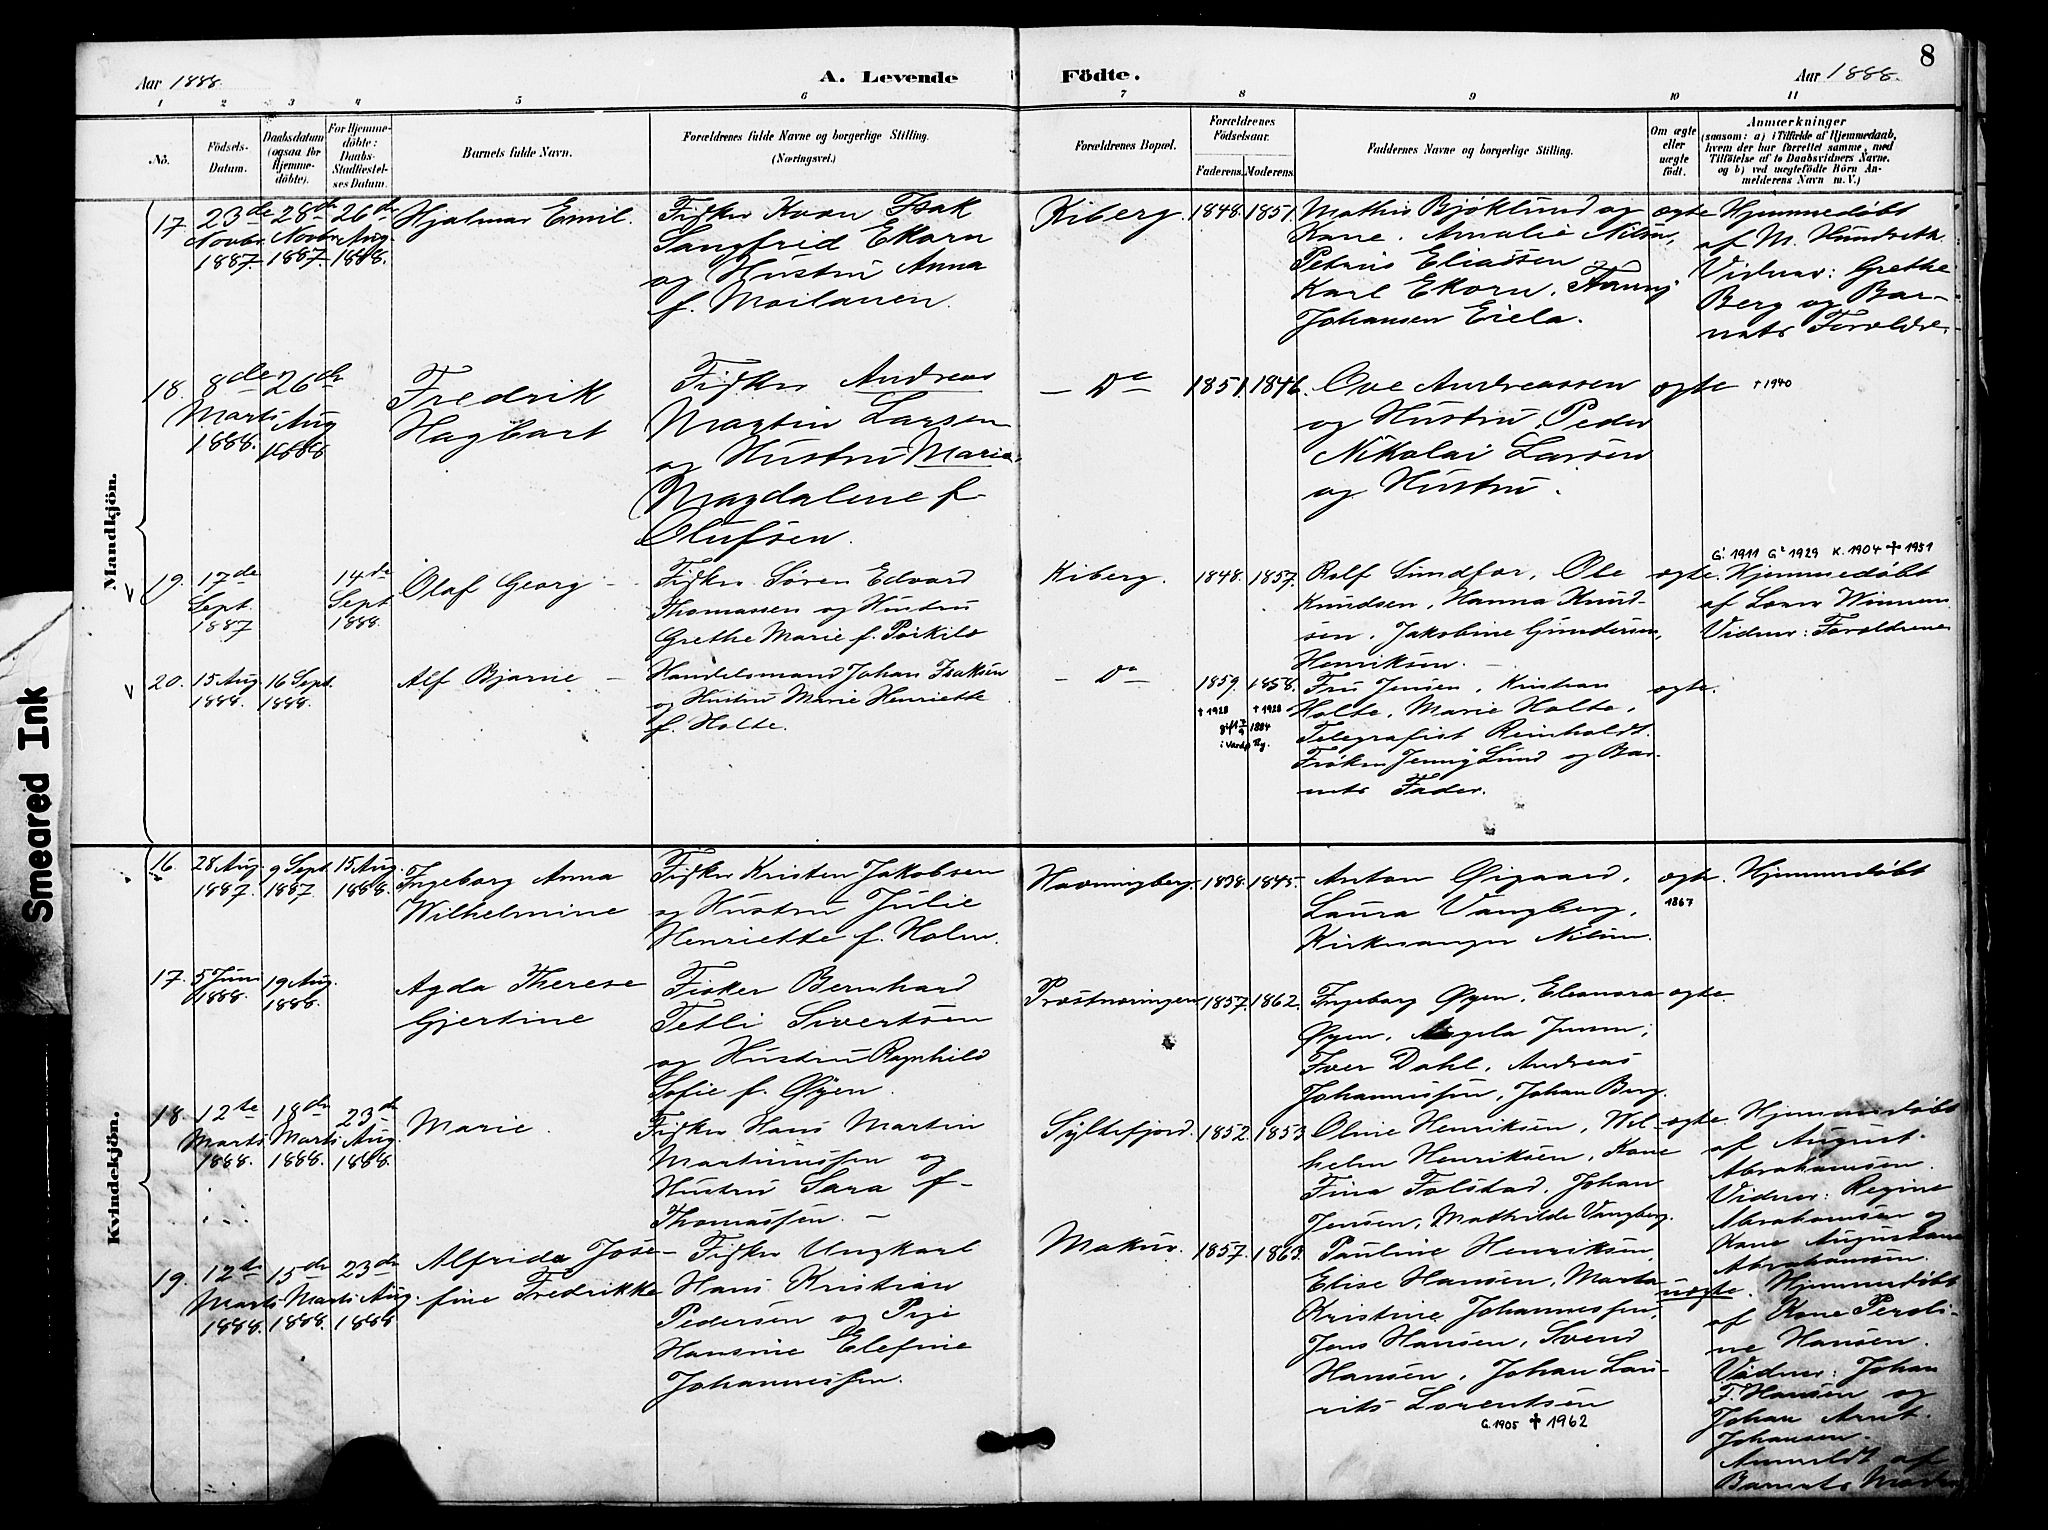 8
Aar 1888.
A. Levende Födte.
Aar 1888.
1 2 3 4 5 6 7 8 9 10 11
No.
Födsels-
Datum.
Daabsdatum
(ogsaa for
Hjemme-
döbte).
For Hjemme-
döbte:
Daabs-
Stadfæstel-
ses Datum.
Barnets fulde Navn.
Forældrenes fulde Navne og borgerlige Stilling.
(Næringsvei.)
Forældrenes Bopæl.
Forældrenes
Födselsaar.
Faderens.
Moderens.
Faddernes Navne og borgerlige Stilling.
Om ægte
eller
uægte
födt.
Anmærkninger
(saasom: a) i Tilfælde af Hjemmedaab,
hvem der har forrettet samme, med
Tilföielse af to Daabsvidners Navne,
og b) ved uægtefödte Börn An-
melderens Navn m. V.)
Mandkjön.
17.
23de
Novbr
1887.
28de
Novbr
1887.
26de
Aug.
1888.
Hjalmar Emil.
Fisker Isak
Sangfrid Ekorn
og Hustru Anna
f. Moilanen.
Kiberg.
1848.
1851.
Mathis Bjøklund og
Kone. Amalie Nilsen,
Petrus Eliassen
Karl Ekorn, Fanny
Johansen Eiela.
ægte
Hjemmedøbt
af M. Hundseth.
Vidner: Grethe
Berg og Bar-
nets Forældre.
18.
8de
Marts
1888.
26de
Aug
1888
Fredrik
Hagbart
Fisker Andreas
Martin Larsen
og Hustru Marie
Magdalene f.
Olufsen.
— Do —
1851.
1846.
Ove Andreassen
og Hustru, Peder
Nikolai Larsen
og Hustru.
ægte
† 1940
19.
17de
Sept.
1887
14de
Sept
1888.
Olaf Georg —
Fisker Søren Edvard
Thomassen og Hustru
Grethe Marie f. Poikilo
Kiberg.
1848.
1857.
Rolf Sundfær, Ole
Knudsen, Hanna Knud-
sen, Jakobine Gundersen,
Henriksen. —
ægte.
G1 1911 G2 1929 K. 1904 ✝ 1951
Hjemmedøbt
af
Vidner: Forældrene
20.
15 Aug.
1888.
16 Sept.
1888.
Alf Bjarne —
Handelsmand Johan Isaksen
og Hustru Marie Henriette
f. Holte.
— Do —
1859.
† 1928
1858.
† 1928
gift 7/9 1884
i Vardø By.
Fru Jensen, Kristian
Holte, Marie Holte,
Telegrafist Reinholdt.
Frøken Jenny Lund og Bar-
nets Fader.
ægte.
Kvindekjön.
16.
28 Aug.
1887.
9 Sept.
1887.
15 Aug.
1888.
Ingeborg Anna
Wilhelmine
Fisker Kristen Jakobsen
og Hustru Julie
Henriette f. Holm.
Havningberg.
1838.
1845.
Anton Øigaard,
Laura Vangberg,
Kirkesanger Nilsen.
ægte.
1867
Hjemmedøbt
17.
5 Juni
1888.
19 Aug.
1888.
Agda Therese
Gjertine
Fisker Bernhard
Tetli Sivertsen
og Hustru Ragnhild
Sofie f. Øyen.
Præstnæringen
1857.
1862.
Ingeborg Øyen, Eleonora
Øyen, Angela Jensen,
Iver Dahl, Andreas
Johannessen, Johan Berg.
ægte.
18.
12te
Marts
1888.
18de
Marts
1888.
23de
Aug.
1888.
Marie.
Fisker Hans Martin
Martinussen og
Hustru Sara f.
Thomassen. —
Syltefjord.
1852.
1853.
Oline Henriksen, Wil-
helm Henriksen, Kone
Fina Folstad, Johan
Jensen, Mathilde Vangberg.
ægte.
Hjemmedøbt
af August
Abrahamsen.
Vidner: Regine
Abrahamsen og
Kone Augustana
Abrahamsen.
19.
12te
Marts
1888.
15de
Marts
1888.
23de
Aug.
1888
Alfrida Jose-
fine Fredrikke
Fisker Ungkarl
Hans Kristian
Pedersen og Pige
Hansine Elefine
Johannessen.
Makur.
1857.
1863.
Pauline Henriksen,
Elise Hansen, Marta
Kristine Johannessen,
Jens Hansen, Svend
Hansen, Johan Lau-
rits Lorentsen
G. 1905 ✝ 1962
uægte.
Hjemmedøbt
af Kone Peroli-
ne Hansen.
Vidner: Johan
F. Hansen og
Johan Arnt
Johansen.
Anmeldt af
Barnets Moder
Smeared Ink